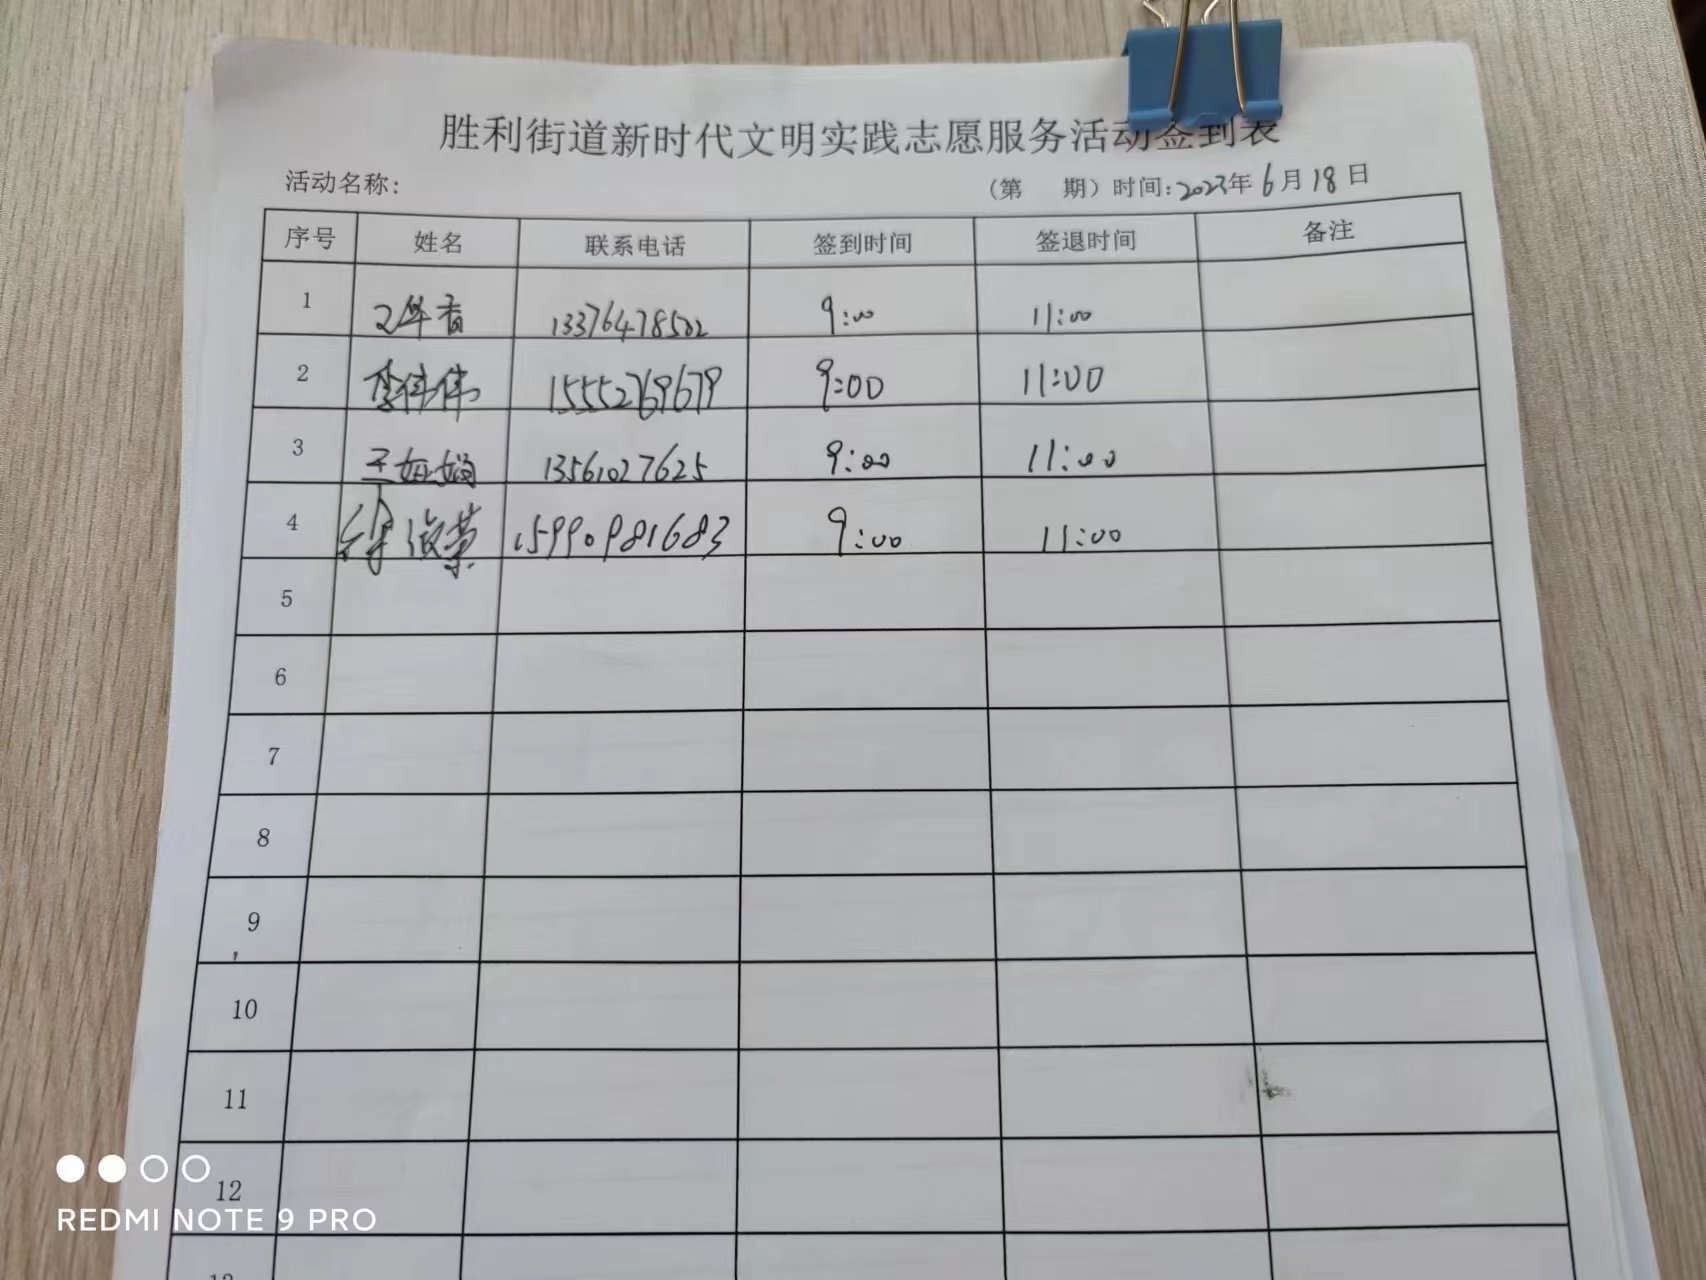 胜利街道新时代文明实践志愿服务活动签到表
活动名称: （第 期）时间:2023年6月18日
序号 姓名 联系电话 签到时间 签退时间 备注
1 13376478502 9:00 11:00
2 李伟伟 15552769679 9:00 11:00
3 王妞娟 13561027625 9:00 11:00
4 15990981683 9:00 11:00
5
6
7
8
9
10
11
12
REDMI NOTE 9 PRO